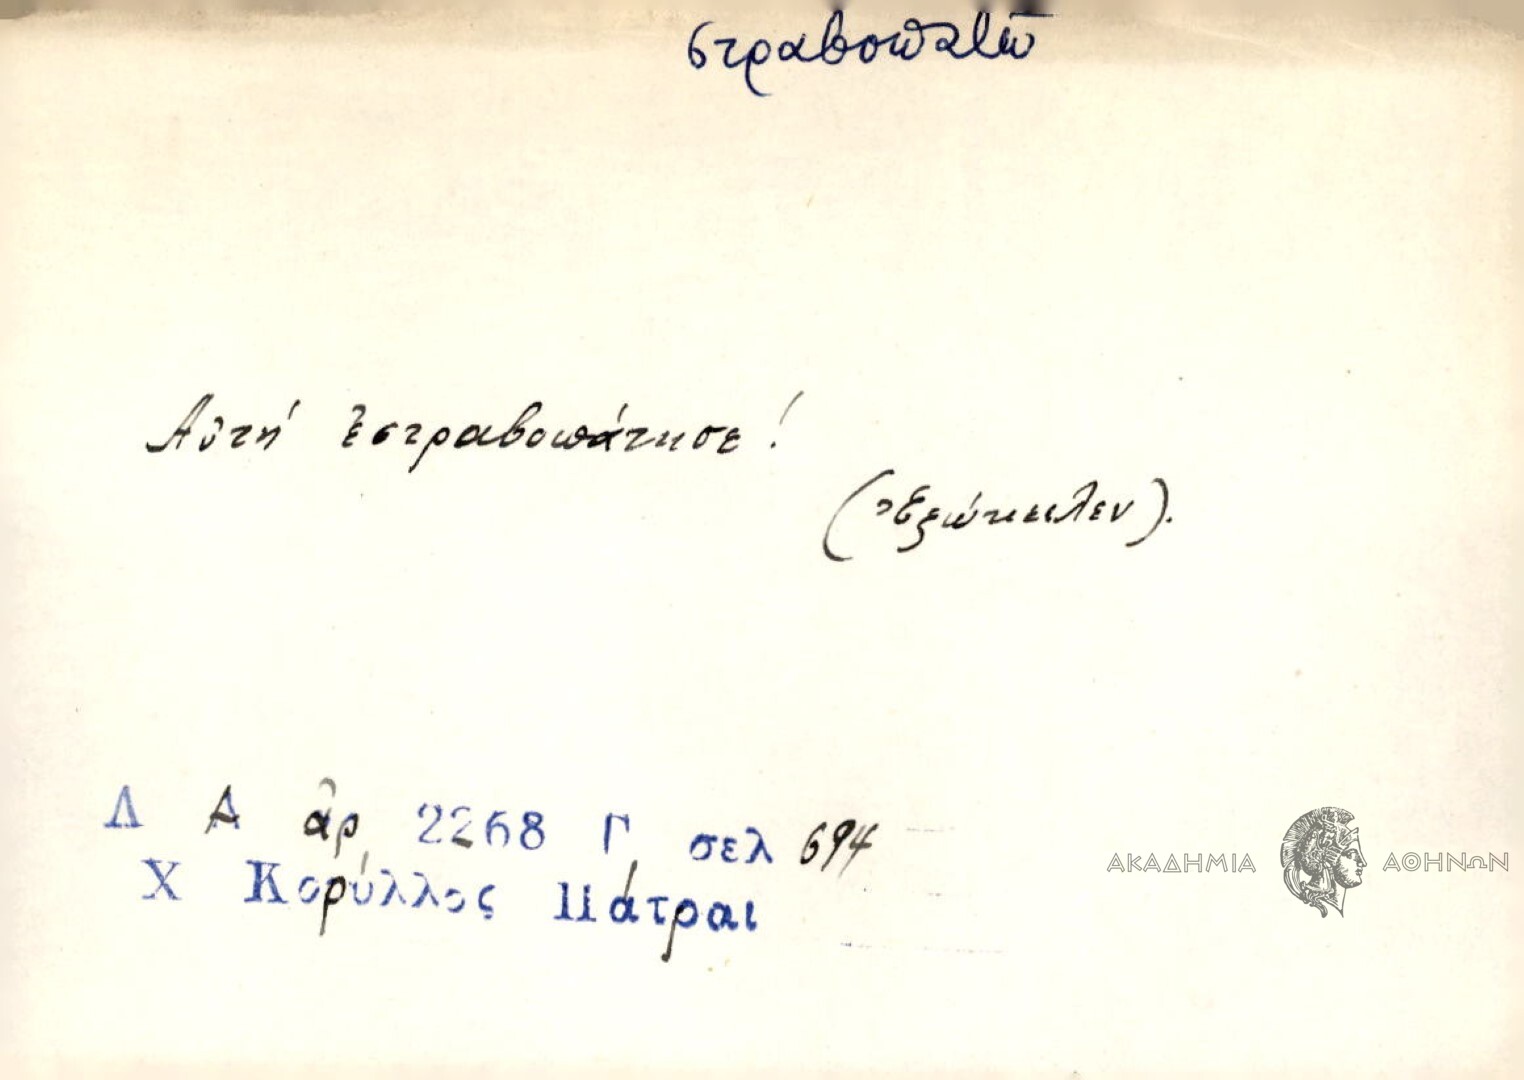 στραβοπατῶ
Αὐτή ἐστραβοπάτησε!
(Ἐξώκειλεν).
Λ Α ἀρ 2268 Γ σελ 694
Χ Κορύλλος Πάτραι
ΑΚΑΔΗΜΙΑ ΑΘΗΝΩΝ